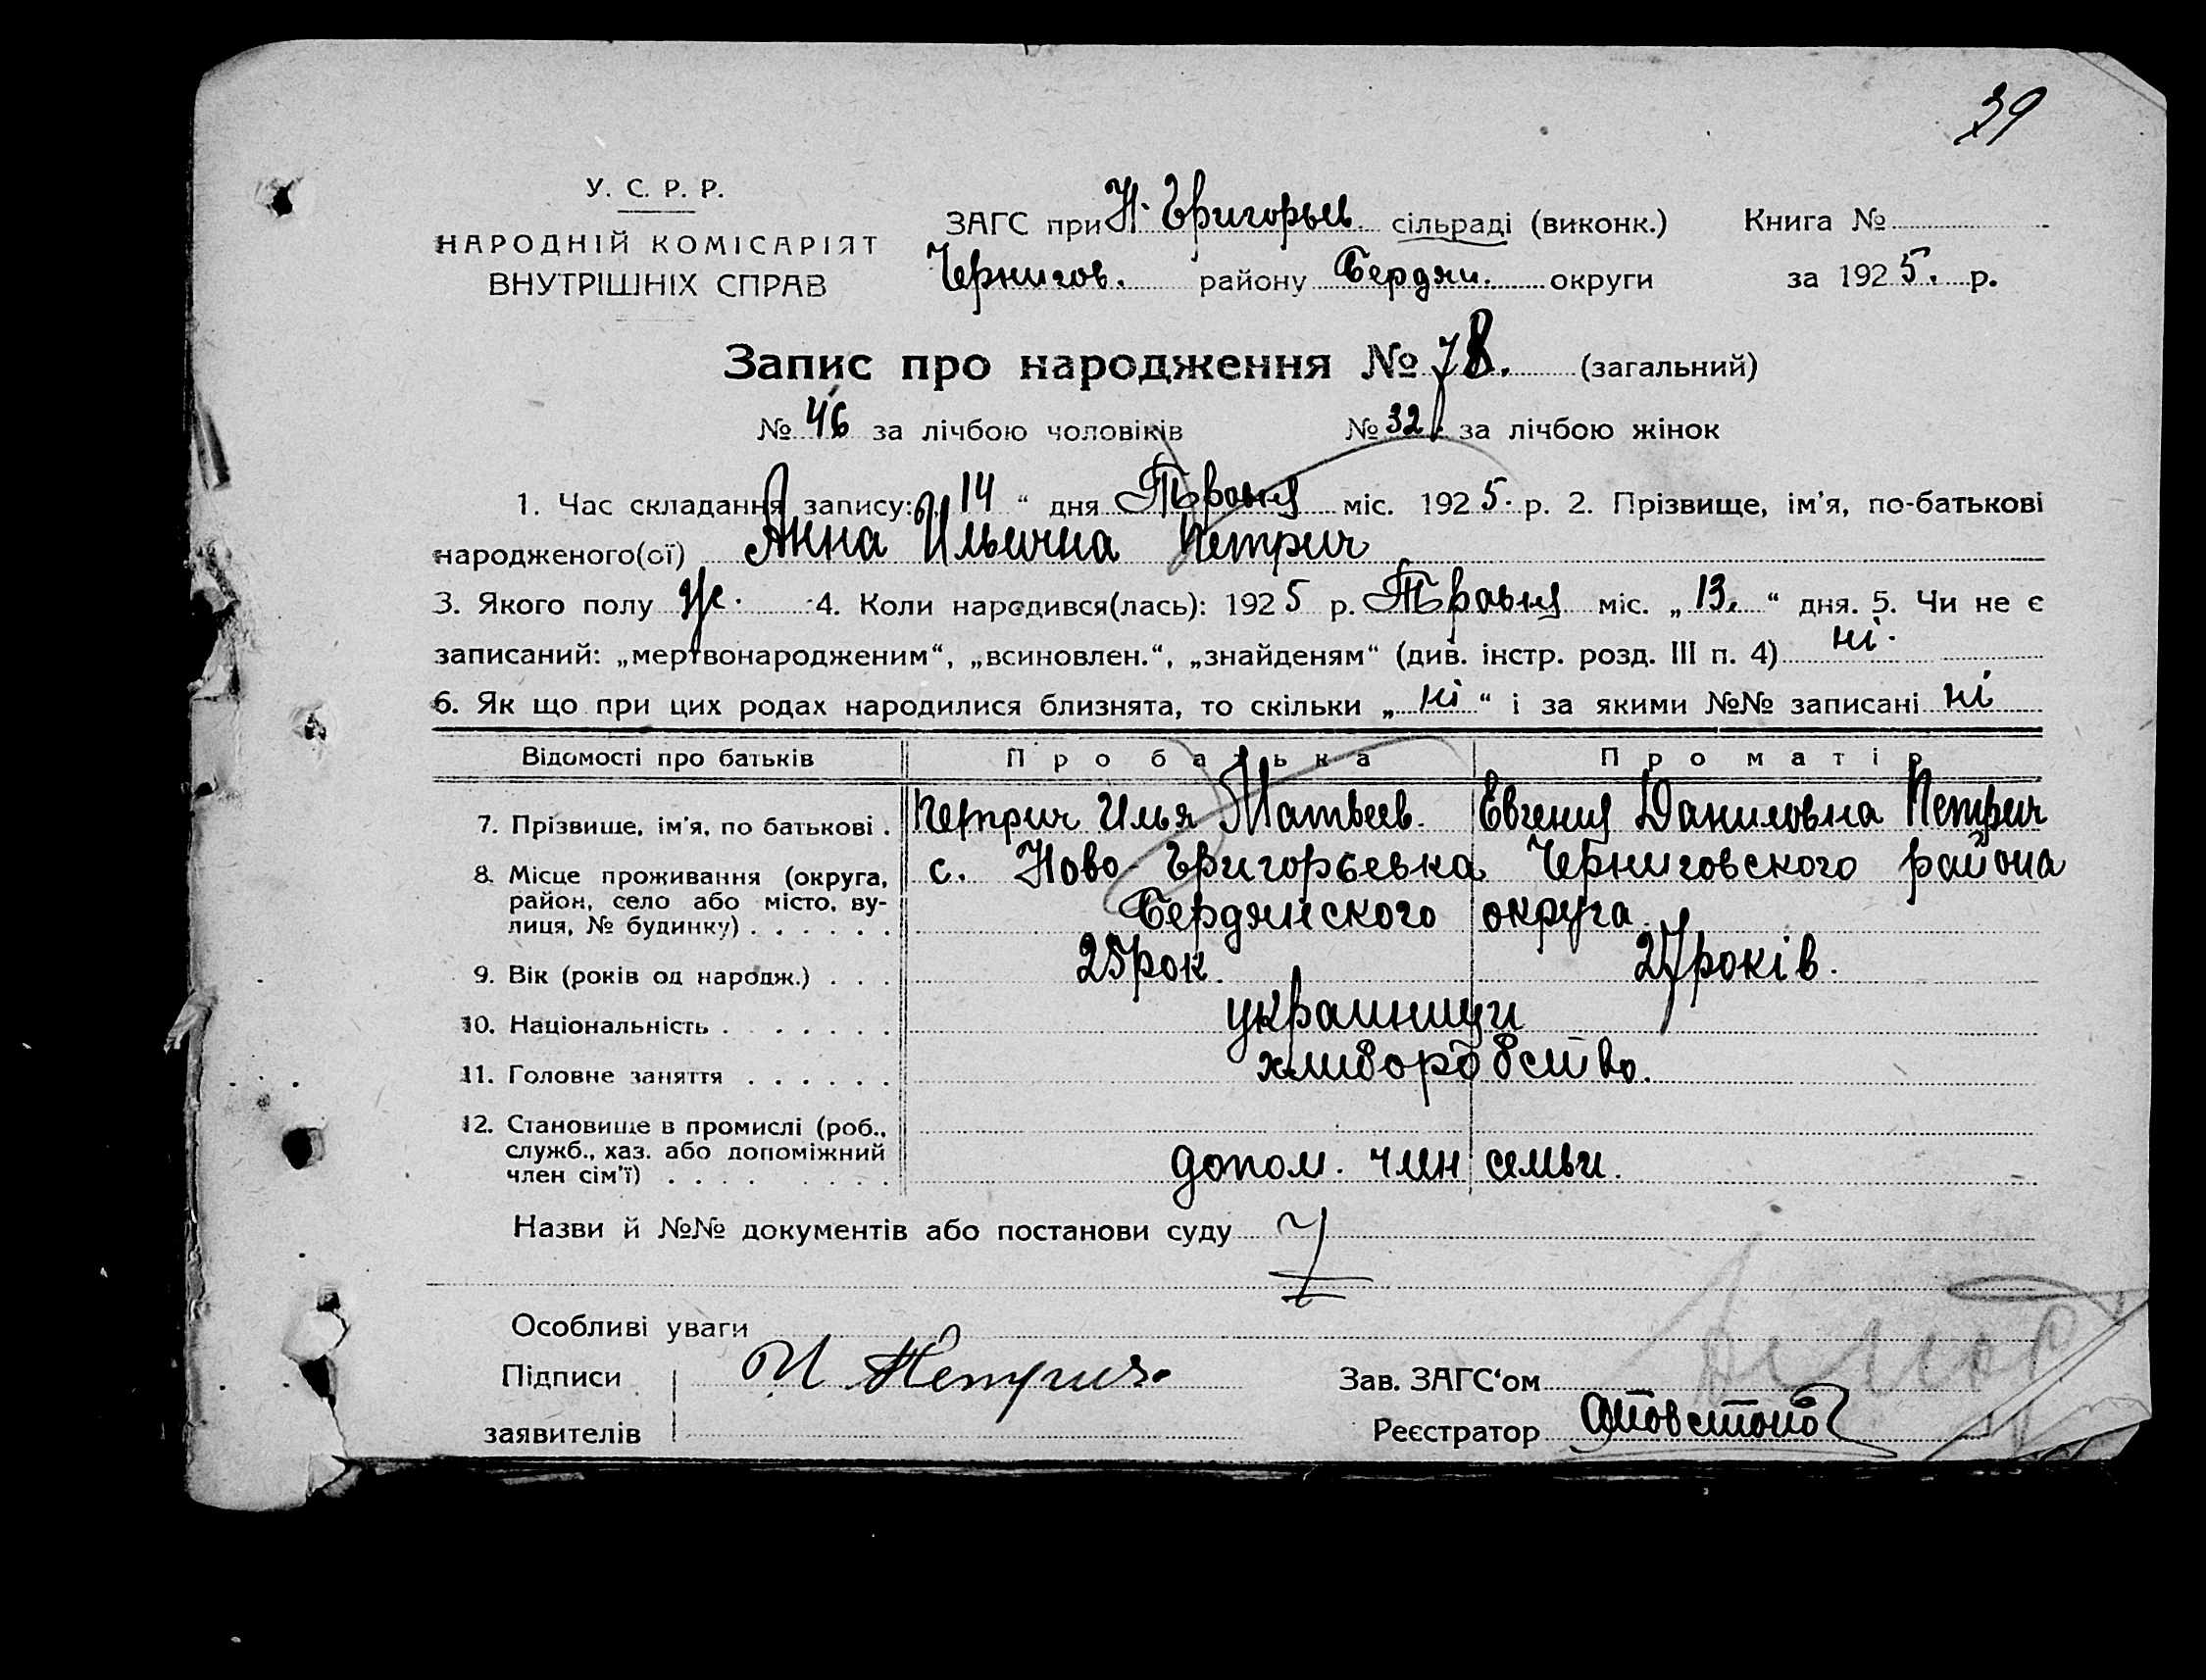 39
У. С. Р. Р.
НАРОДНІЙ КОМІСАРІЯТ
ВНУТРІШНІХ СПРАВ
ЗАГС при Н. Григорьев сільраді (виконк.) Книга №
Чернигов. району Бердян. округи за 1925. р.
Запис про народження № 78. (загальний)
№ 46 за лічбою чоловіків № 32 за лічбою жінок
1. Час складання запису: „14“ дня Травня міс. 1925. р. 2. Прізвище, ім’я, по-батькові
народженого(ої) Анна Ильична Петрич
3. Якого полу ж. 4. Коли народився(лась): 1925 р. Травня міс. „13.“ дня. 5. Чи не є
записаний: „мертвонародженим“, „всиновлен.“, „знайденям“ (див. інстр. розд. III п. 4) ні.
6. Як що при цих родах народилися близнята, то скільки „ні“ і за якими №№ записані ні
Відомості про батьків Про батька Про матір
7. Прізвище, ім’я, по батькові . Петрич Илья Матвеев. Евгения Даниловна Петрич
8. Місце проживання (округа, район, село або місто, вулиця, № будинку) . . . . . . с. Ново Григорьевка Черниговского района
Бердянского округа.
9. Вік (років од народж.) . . . 25 рок. 27 років.
10. Національність . . . . . . . украинци
11. Головне заняття . . . . . . хлиборобство.
12. Становище в промислі (роб., служб., хаз. або допоміжний член сім’ї) . . . . . . . . допом. член семьи.
Назви й №№ документів або постанови суду
Особливі уваги
Підписи И Петрич. Зав. ЗАГС‘ом
заявителів Реєстратор